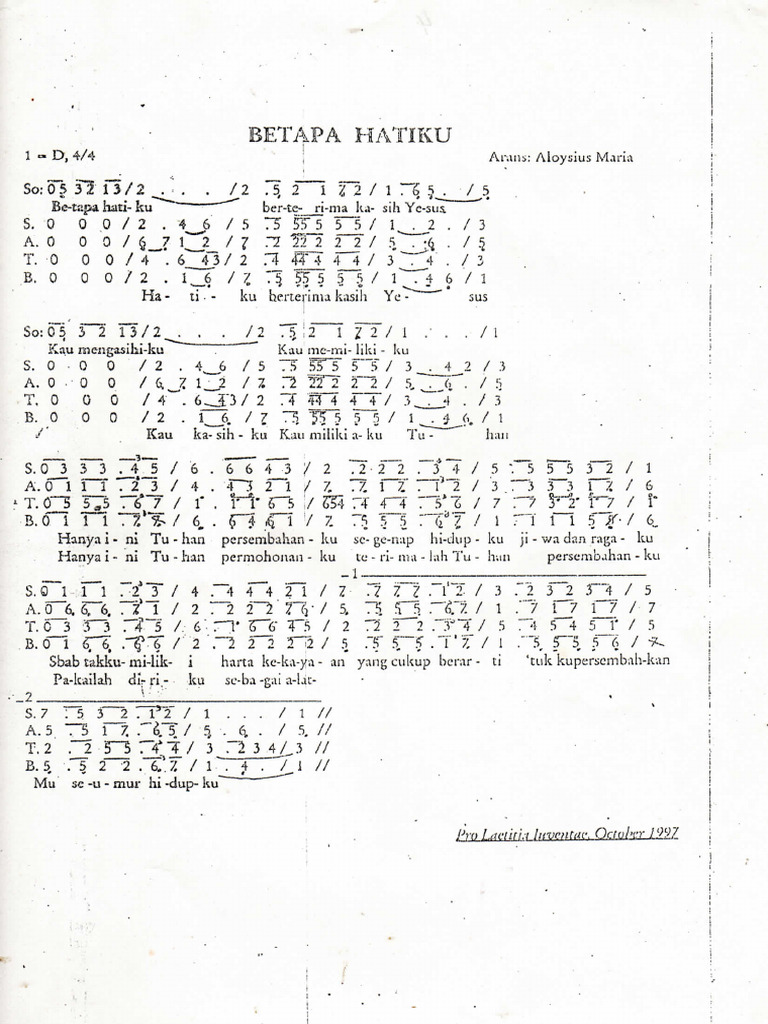 BETAPA HATIKU
1 = D, 4/4 Arans: Aloysius Maria
So: 05 32 13 / 2 . . . / 2 .5 2 1 72 / 1 .65 . / 5
Be-tapa hati- ku ber-te- ri-ma ka- sih Ye-sus
S. 0 0 0 / 2 . 4 6 / 5 .5 55 5 5 5 / 1 . 2 . / 3
A. 0 0 0 / 6 7 1 2 / 7 .2 22 2 2 2 / 5 . 6 . / 5
T. 0 0 0 / 4 . 6 43 / 2 .4 44 4 4 4 / 3 . 4 . / 3
B. 0 0 0 / 2 . 1 6 / 7 .5 55 5 5 5 / 1 . 4 6 / 1
Ha- ti - ku berterima kasih Ye- sus
So: 05 3 2 13 / 2 . . . / 2 .5 2 1 72 / 1 . . . / 1
Kau mengasihi-ku Kau me-mi-liki - ku
S. 0 0 0 / 2 . 4 6 / 5 .5 55 5 5 5 / 3 . 4 2 / 3
A. 0 0 0 / 6 7 1 2 / 7 .2 22 2 2 2 / 5 . 6 . / 5
T. 0 0 0 / 4 . 6 43 / 2 .4 44 4 4 4 / 3 . 4 . / 3
B. 0 0 0 / 2 . 1 6 / 7 .5 55 5 5 5 / 1 . 4 6 / 1
Kau ka-sih- ku Kau miliki a- ku Tu- han
S. 0 3 3 3 . 4 5 / 6 . 6 6 4 3 / 2 .2 2 2 . 3 4 / 5 . 5 5 5 3 2 / 1
A. 0 1 1 1 . 2 3 / 4 . 4 3 2 1 / 7 .7 1 7 . 1 2 / 3 . 3 3 3 1 7 / 6
T. 0 5 5 5 . 6 7 / 1 . 1 1 6 5 / 654 .4 4 4 . 5 6 / 7 . 7 3 2 1 7 / 1
B. 0 1 1 1 . 7 / 6 . 6 4 6 1 / 7 .5 5 5 . 6 7 / 1 . 1 1 1 5 / 6
Hanya i- ni Tu- han persembahan- ku se-ge-nap hi-dup- ku ji- wa dan raga- ku
Hanya i- ni Tu- han permohonan- ku te- ri-ma-lah Tu- han persembahan-ku
1
S. 0 1 1 1 . 2 3 / 4 . 4 4 4 2 1 / 7 .7 7 7 . 1 2 / 3 . 2 3 2 3 4 / 5
A. 0 6 6 6 . 7 1 / 2 . 2 2 2 7 6 / 5 .5 5 5 . 6 7 / 1 . 7 1 7 1 7 / 7
T. 0 3 3 3 . 4 5 / 6 . 1 6 6 4 5 / 2 .2 2 2 . 3 4 / 5 . 4 5 4 5 1 / 5
B. 0 1 6 6 . 6 6 / 2 . 2 2 2 2 2 / 5 .5 5 5 . 1 7 / 1 . 5 5 5 5 6 /
Sbab takku-mi-lik- i harta ke-ka-ya - an yang cukup berar - ti 'tuk kupersembah-kan
Pa-kailah di-ri- ku se-ba-gai a-lat-
2
S. 7 .5 3 2 . 1 2 / 1 . . . / 1 //
A. 5 .5 1 7 . 6 5 / 5 . 6 . / 5 //
T. 2 . 2 5 5 . 4 4 / 3 . 2 3 4 / 3 //
B. 5 .5 2 2 . 6 7 / 1 . 4 . / 1 //
Mu se -u - mur hi -dup- ku
Pro Laetitia Iuventae, October 1997